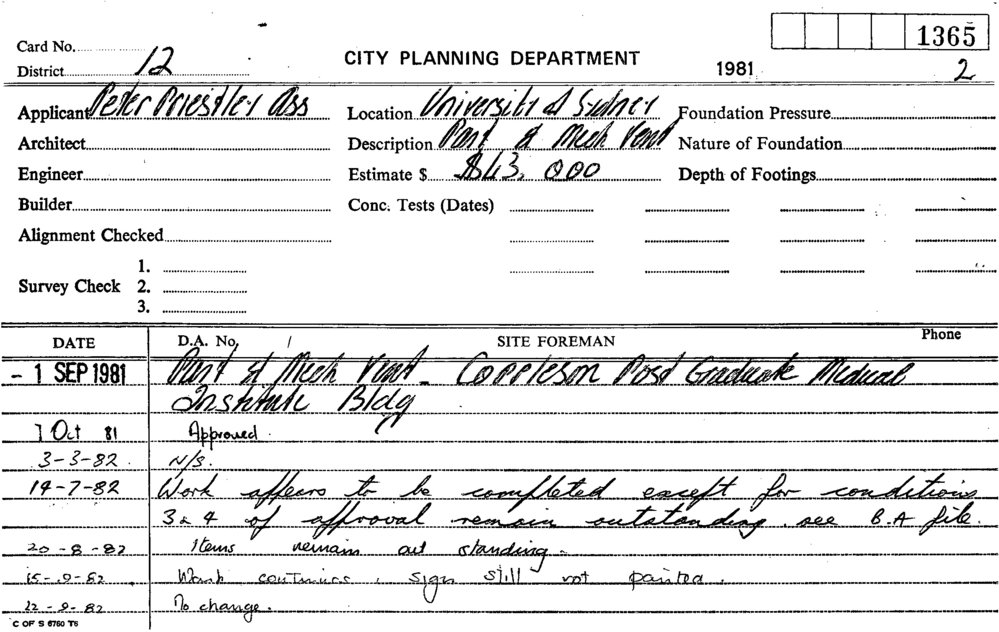 1365
Card No.
District 12
CITY PLANNING DEPARTMENT
1981 2
Applicant Peter Priestley Ass
Location University of Sydney
Foundation Pressure
Architect
Description Part of Mech Vent
Nature of Foundation
Engineer
Estimate $ $43,000
Depth of Footings
Builder
Conc. Tests (Dates)
Alignment Checked
1.
Survey Check 2.
3.
DATE D.A. No. / SITE FOREMAN Phone
- 1 SEP 1981 Part of Mech Vent - Coppleson Post Graduate Medical
Institute Bldg
1 Oct 81 Approved.
3-3-82. N/S.
14-7-82 Work appears to be completed except for conditions
3 & 4 of approval remain outstanding. see B.A file.
20-8-82 Items remain out standing.
15-9-82. Work continues, sign still not painted.
22-9-82 No change.
C OF S 6760 T6